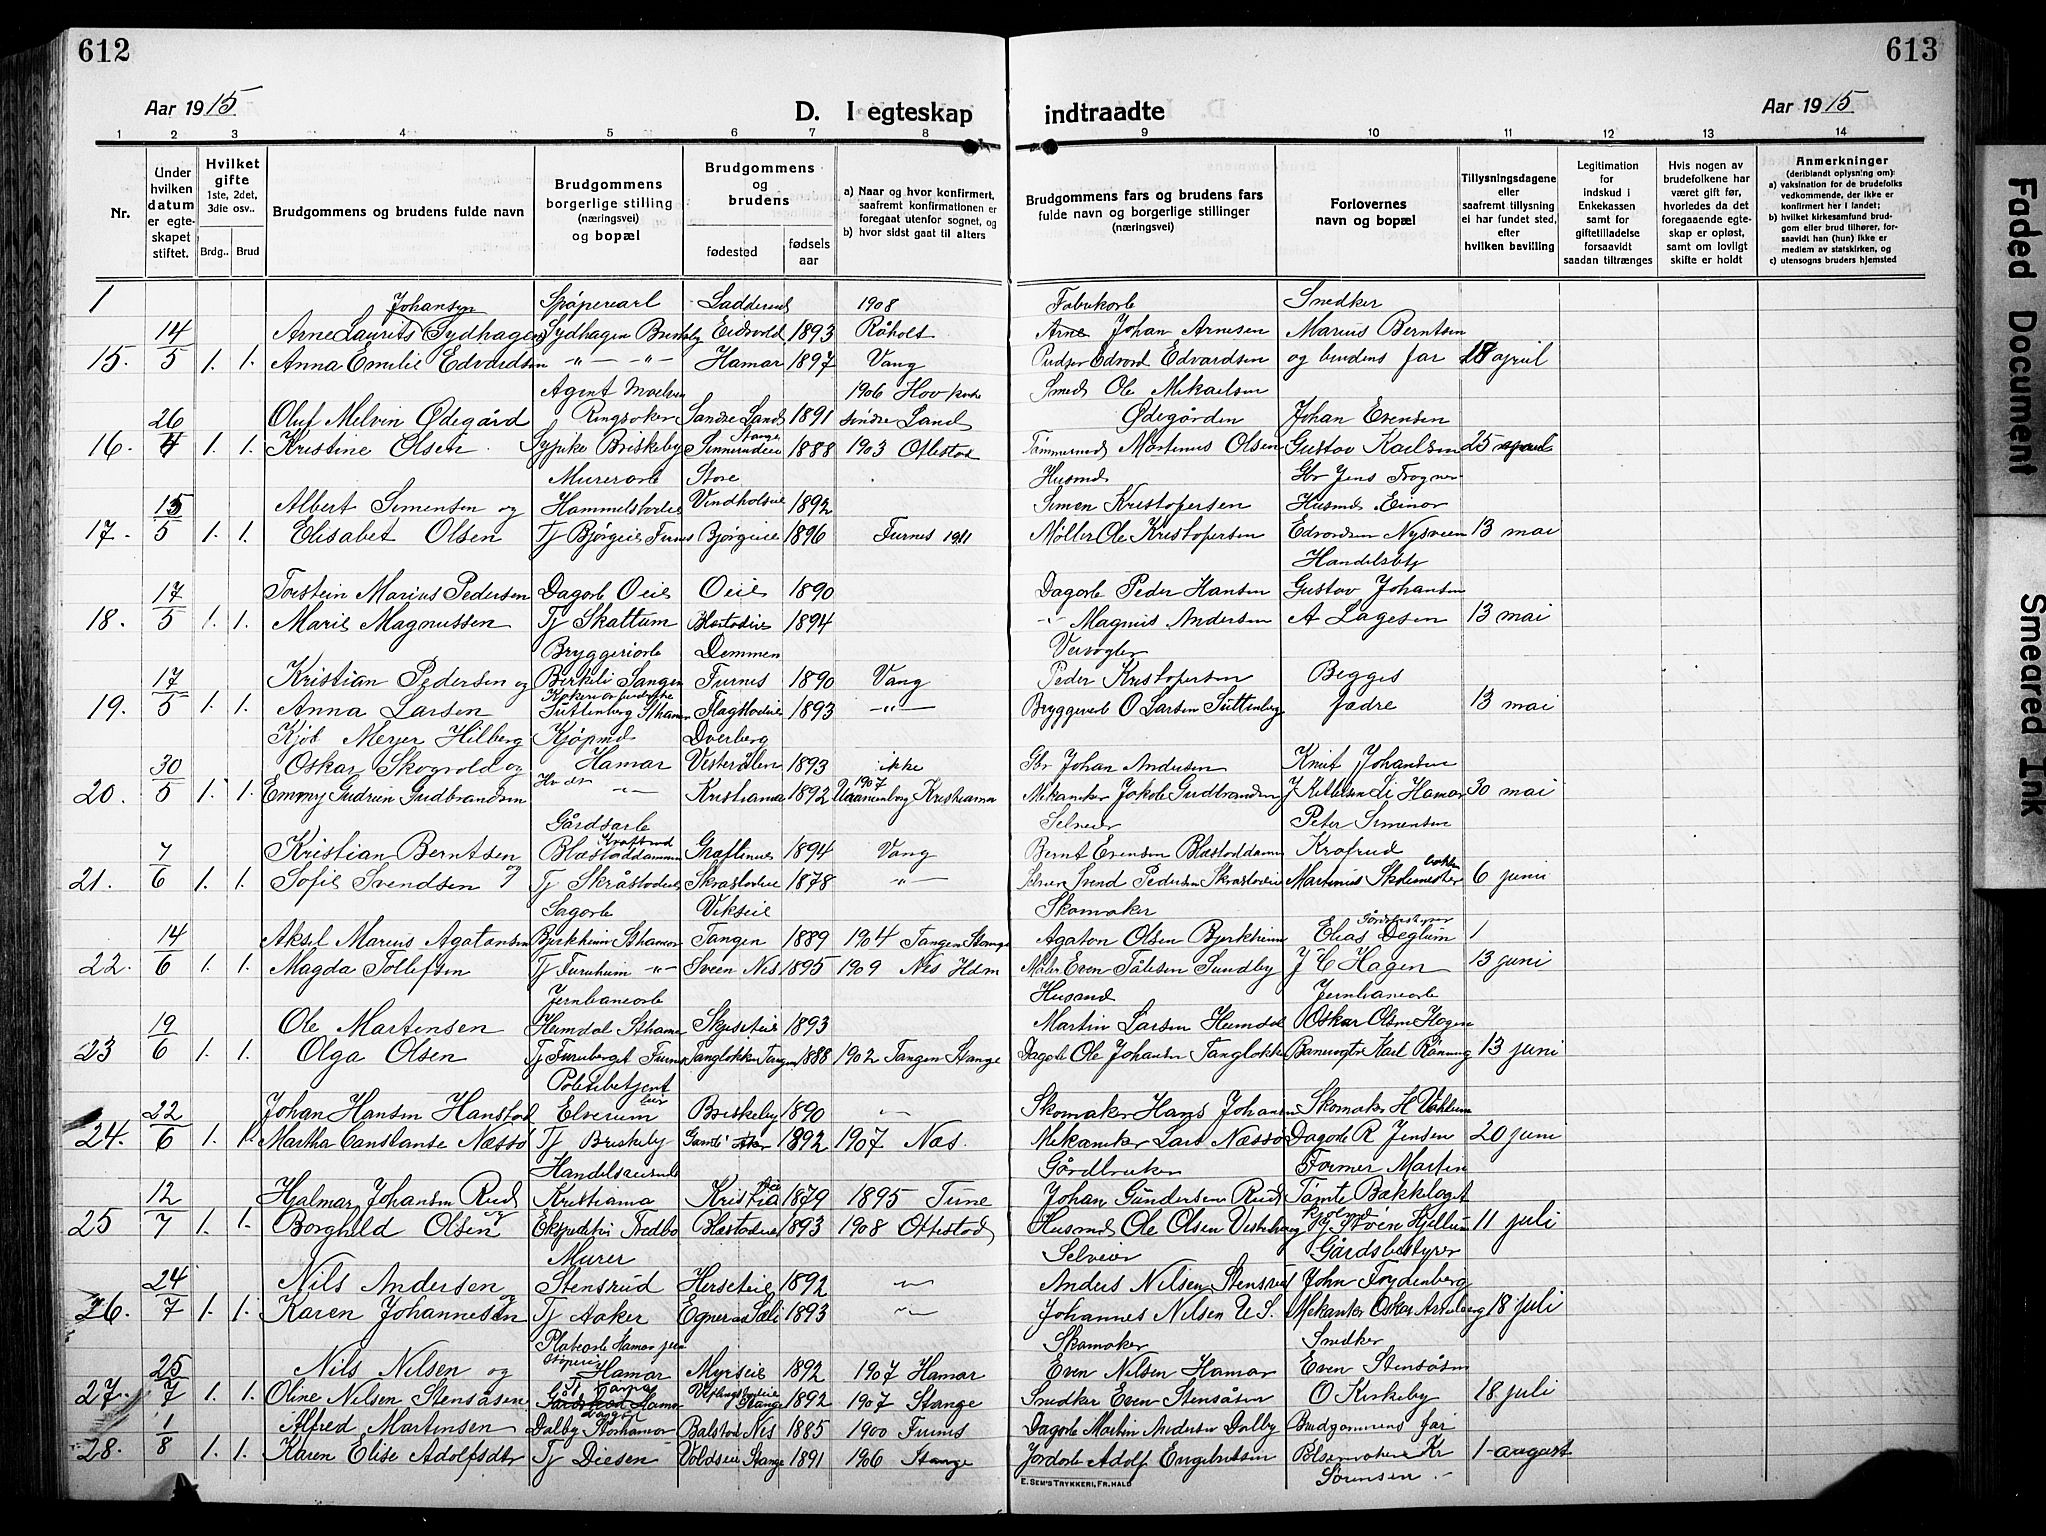 612
613
Aar 1915
D. I egteskap indtraadte
Aar 1915
1 2 3 4 5 6 7 8 9 10 11 12 13 14
Nr.
Under hvilken datum er egteskapet stiftet.
Hvilket gifte 1ste, 2det, 3die osv..
Brdg.. Brud
Brudgommens og brudens fulde navn
Brudgommens borgerlige stilling (næringsvei) og bopæl
Brudgommens og brudens
fødested
fødsels aar
a) Naar og hvor konfirmert, saafremt konfirmationen er foregaat utenfor sognet, og
b) hvor sidst gaat til alters
Brudgommens fars og brudens fars fulde navn og borgerlige stillinger (næringsvei)
Forlovernes navn og bopæl
Tillysningsdagene eller saafremt tillysning ei har fundet sted, efter hvilken bevilling
Legitimation for indskud i Enkekassen samt for giftetilladelse forsaavidt saadan tiltrænges
Hvis nogen av brudefolkene har været gift før, hvorledes da det foregaaende egteskap er opløst, samt om lovligt skifte er holdt
Anmerkninger (deriblandt oplysning om)
a) vaksination for de brudefolks vedkommende, der ikke er konfirmert her i landet;
b) hvilket kirkesamfund brudgom eller brud tilhører, forsaavidt han (hun) ikke er medlem av statskirken, og
c) utensogns bruders hjemsted
1 Johansen 1908 Snedker
14 Arne Laurits Sydhagen Sydhagen Eidsvold 1893 Råholt Arne Johan Arnesen Marius Berntsen
15. 5 1. 1. Anna Emilie Edvardsen -"- -"- Hamar 1897 Vang Edvard Edvardsen og brudens far 18 april
Agent Moelven 1906 Hov Smed Ole Mikaelsen
26 Oluf Melvin Ødegård Ringsaker Søndre Land 1891 Søndre Land Ødegården Johan Evensen
16. 4 1. 1. Kristine Olsen Sypike Briskeby Stange 1888 1903 Ottestad Martinus Olsen Gustav Karlsen 25 april
Murerarb Store Husmd Gbr Jens Frogner
15 Albert Simensen og Hammelstadeie Vindholseie 1892 Simen Kristofersen Husmd Einar
17. 5 1. 1. Elisabet Olsen Tj Bjørgeie Furnes Bjørgeie 1896 Furnes 1911 Møller Ole Kristofersen Edvardsen Nysveen 13 mai
Handelsbtj
17 Torstein Marius Pedersen Dagarb Oeie Oeie 1890 Dagarb Peder Hansen Gustav Johansen
18. 5 1. 1. Marie Magnussen Tj Skattum 1894 -"- Magnus Andersen A Lagesen 13 mai
Bryggeriarb Demmen
17 Kristian Pedersen og Birkeli Sangen Furnes 1890 Vang Peder Kristofersen Begges
19. 5 1. 1. Anna Larsen Suttenberg Sthamar Flagstadeie 1893 -"- O Larsen Suttenberg fædre 13 mai
Kjøb Meyer Hilberg Kjøpmd Dverberg
30 Oskar Skogvold og Hamar Vesterålen 1893 ikke Gbr Johan Andersen Knut Johansen
20. 5 1. 1. Emmy Gudrun Gudbrandsen -"- Kristiania 1892 1907 Uranienborg Kristiania Mekaniker Jakob Gudbrandsen Hamar 30 mai
Gårdsarb Selveier Peter Simensen
7 Kristian Berntsen Blæstaddammen 1894 Vang Bernt Evensen Blæstaddammen Krafsrud
21. 6 1. 1. Sofie Svendsen og Tj Skråstadeie Skrastadeie 1878 -"- Svend Pedersen Skrastadeie Martinius Skolemester 6 juni
Sagarb Vikseie Skomaker
14 Aksel Marius Agatonsen Bjerkheim Sthamar Tangen 1889 1904 Tangen Stange Agaton Olsen Bjerkheim Elias Deglum 1
22. 6 1. 1. Magda Tollefsen Tj Furuheim -"- Sveen Nes 1895 1909 Nes Hdm Maler Even Sundby J C Hagen 13 juni
Jernbanearb Husmd Jernbanearb
19 Ole Martinsen Heimdal Sthamar Skjeseteie 1893 Martin Larsen Heimdal Oskar Olsen Hagen
23 6 1. 1. Olga Olsen Tj Furuberget Furnes Tangløkken Tangen 1888 1902 Tangen Stange Dagarb Ole Johansen Tangløkken Banevogter Karl Rønning 13 juni
Politibetjent
22 Johan Hansen Hansstad Elverum Briskeby 1890 -"- Skomaker Hans Johansen Skomaker H Vahlum
24. 6 1. 1. Martha Constanse Næssø Tj Briskeby 1892 1907 Næs. Mekaniker Lars Næssø Dagarb R Jensen 20 juni
Handelsreisende Gårdbruker Former Martin
12 Hjalmar Johansen Rud Kristiania Kristiania 1879 1895 Tune Johan Gundersen Rud Tomte Bækkelaget
25 7 1. 1. Borghild Olsen Blæstadeie 1893 1908 Ottestad Husmd Ole Olsen Hjellum 11 juli
Murer Selveier Gårdsbestyrer
24 Nils Andersen og Stensrud Herseteie 1892 -"- Anders Nilsen Stensrud John Frydenberg
26. 7 1. 1. Karen Johannessen Tj Aaker 1893 -"- Johannes Nilsen U.S. Oskar 18 juli
Skomaker Snedker
25 Nils Nilsen og Hamar Myrseie 1892 1907 Hamar Even Nilsen Hamar Even Stensåsen
27. 7 1. 1. Oline Nilsen Stensåsen Stange 1892 1907 Stange Snedker Even Stensåsen O Kirkeby 18 juli
1 Alfred Martinsen Dalby Storhamar Balstad Nes 1885 1900 Furnes Dagarb Martin Andersen Dalby Brudgommens far
28. 8 1. 1. Karen Elise Adolfsdtr Tj Diesen Voldseie Stange 1891 1906 Stange Jordarb Adolf Engebretsen Pølsemaker Kr 1-august
Sørensen
E. SEM'S TRYKKERI, FR.HALD
Faded Document
Smeared Ink